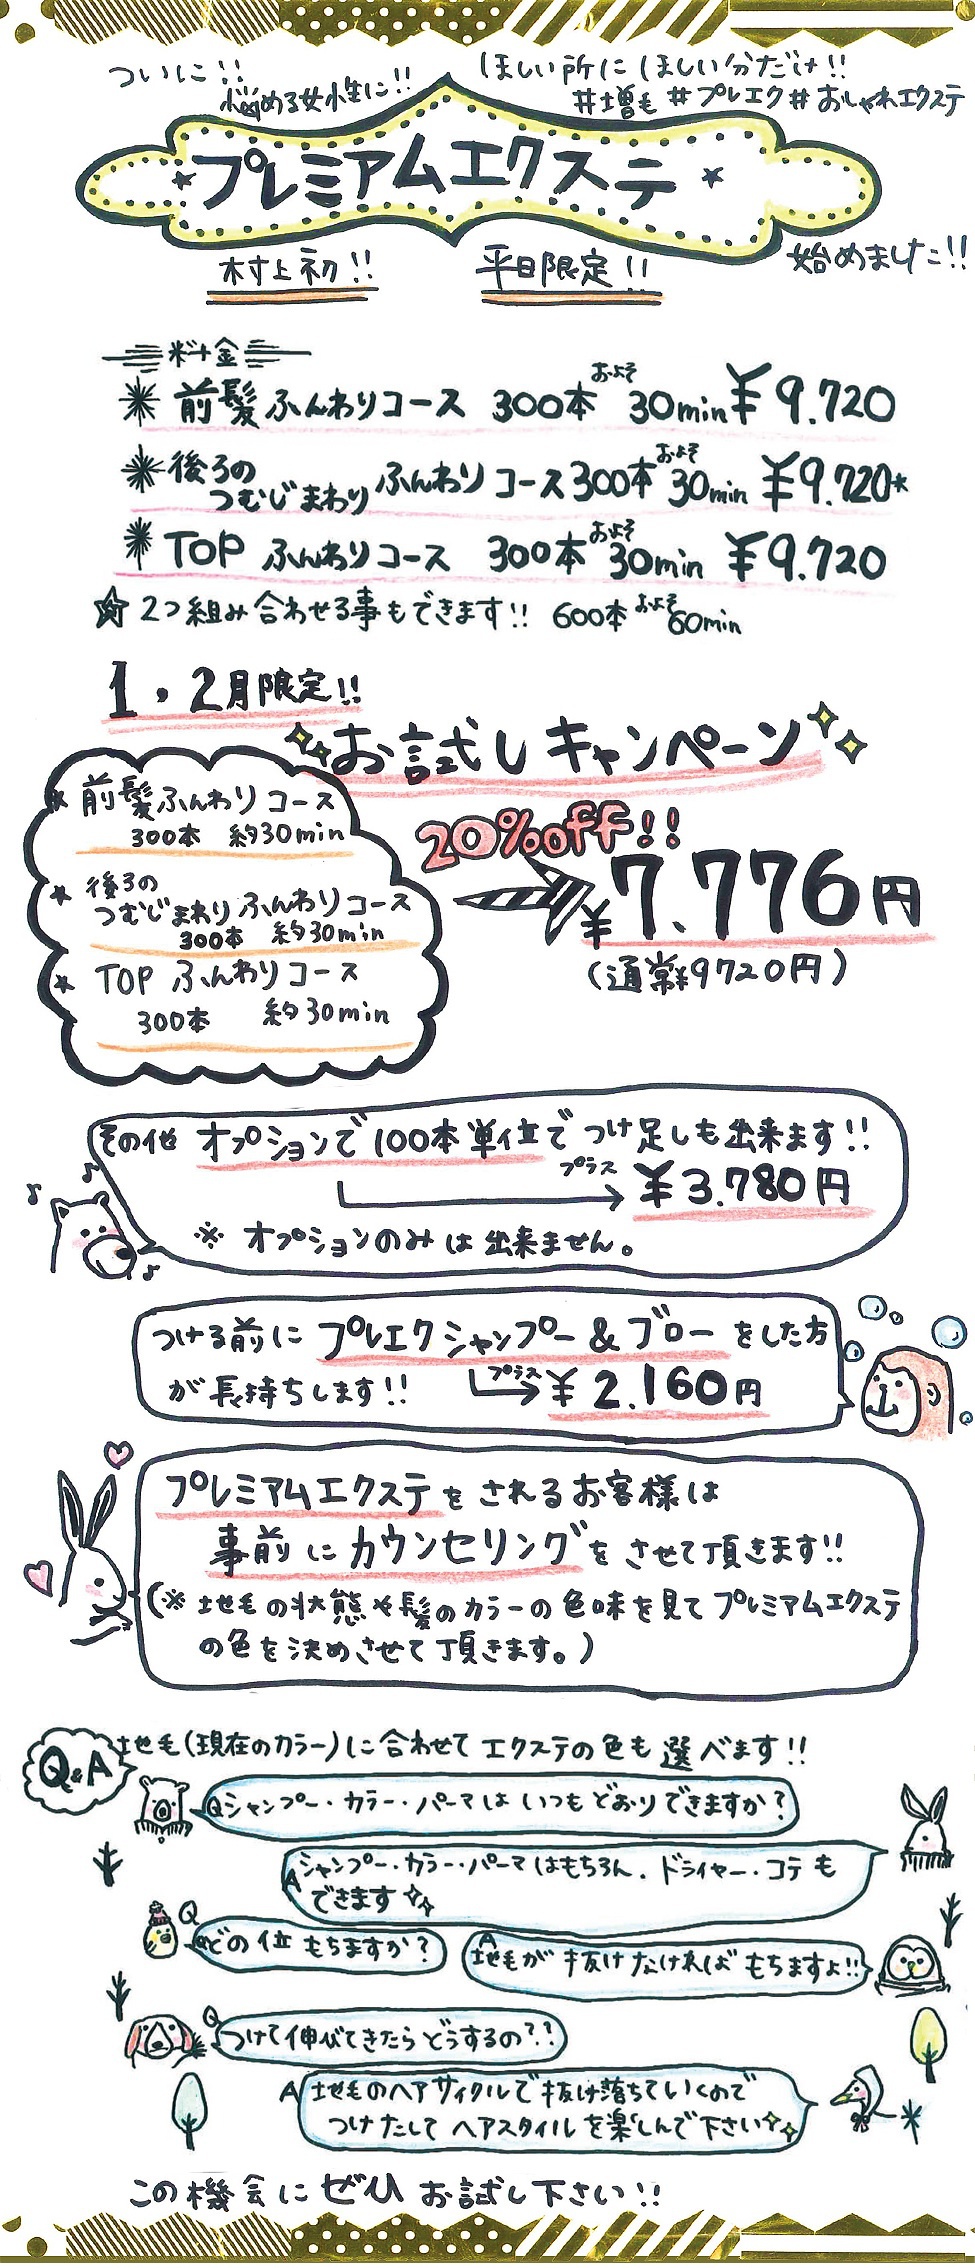 ついに!!
悩める女性に!!
ほしい所にほしい分だけ!!
#増毛 #プレエク# おしゃれエクステ
★プレミアムエクステ★
村上初!!
平日限定!!
始めました!!
料金
前髪ふんわりコース 300本 およそ30min ¥9.720
後ろのつむじまわり ふんわりコース 300本 およそ30min ¥9.720*
TOP ふんわりコース 300本 およそ30min ¥9.720
☆2つ組み合わせる事もできます!! 600本 およそ60min
1,2月限定!!
お試しキャンペーン
★前髪ふんわりコース
300本 約30min
★後ろの
つむじまわり ふんわりコース
300本 約30min
★TOP ふんわりコース
300本 約30min
20%off!!
¥7.776円
(通常¥9720円)
その他 オプションで100本単位でつけ足しも出来ます!!
プラス ¥3.780円
※ オプションのみは出来ません。
つける前に プレエクシャンプー&ブローをした方
が長持ちします!! プラス ¥2.160円
プレミアムエクステをされるお客様は
事前にカウンセリングをさせて頂きます!!
(※ 地毛の状態や髪のカラーの色味を見てプレミアムエクステ
の色を決めさせて頂きます。)
Q&A
地毛(現在のカラー)に合わせて エクステの色も選べます!!
Q シャンプー・カラー・パーマは いつもどおりできますか?
A シャンプー・カラー・パーマはもちろん、ドライヤー・コテも
できます
Q どの位もちますか?
A 地毛が抜けなければもちますよ!!
Q つけて伸びてきたらどうするの??
A 地毛のヘアサイクルで抜け落ちていくので
つけたしてヘアスタイルを楽しんで下さい
この機会にぜひお試し下さい!!